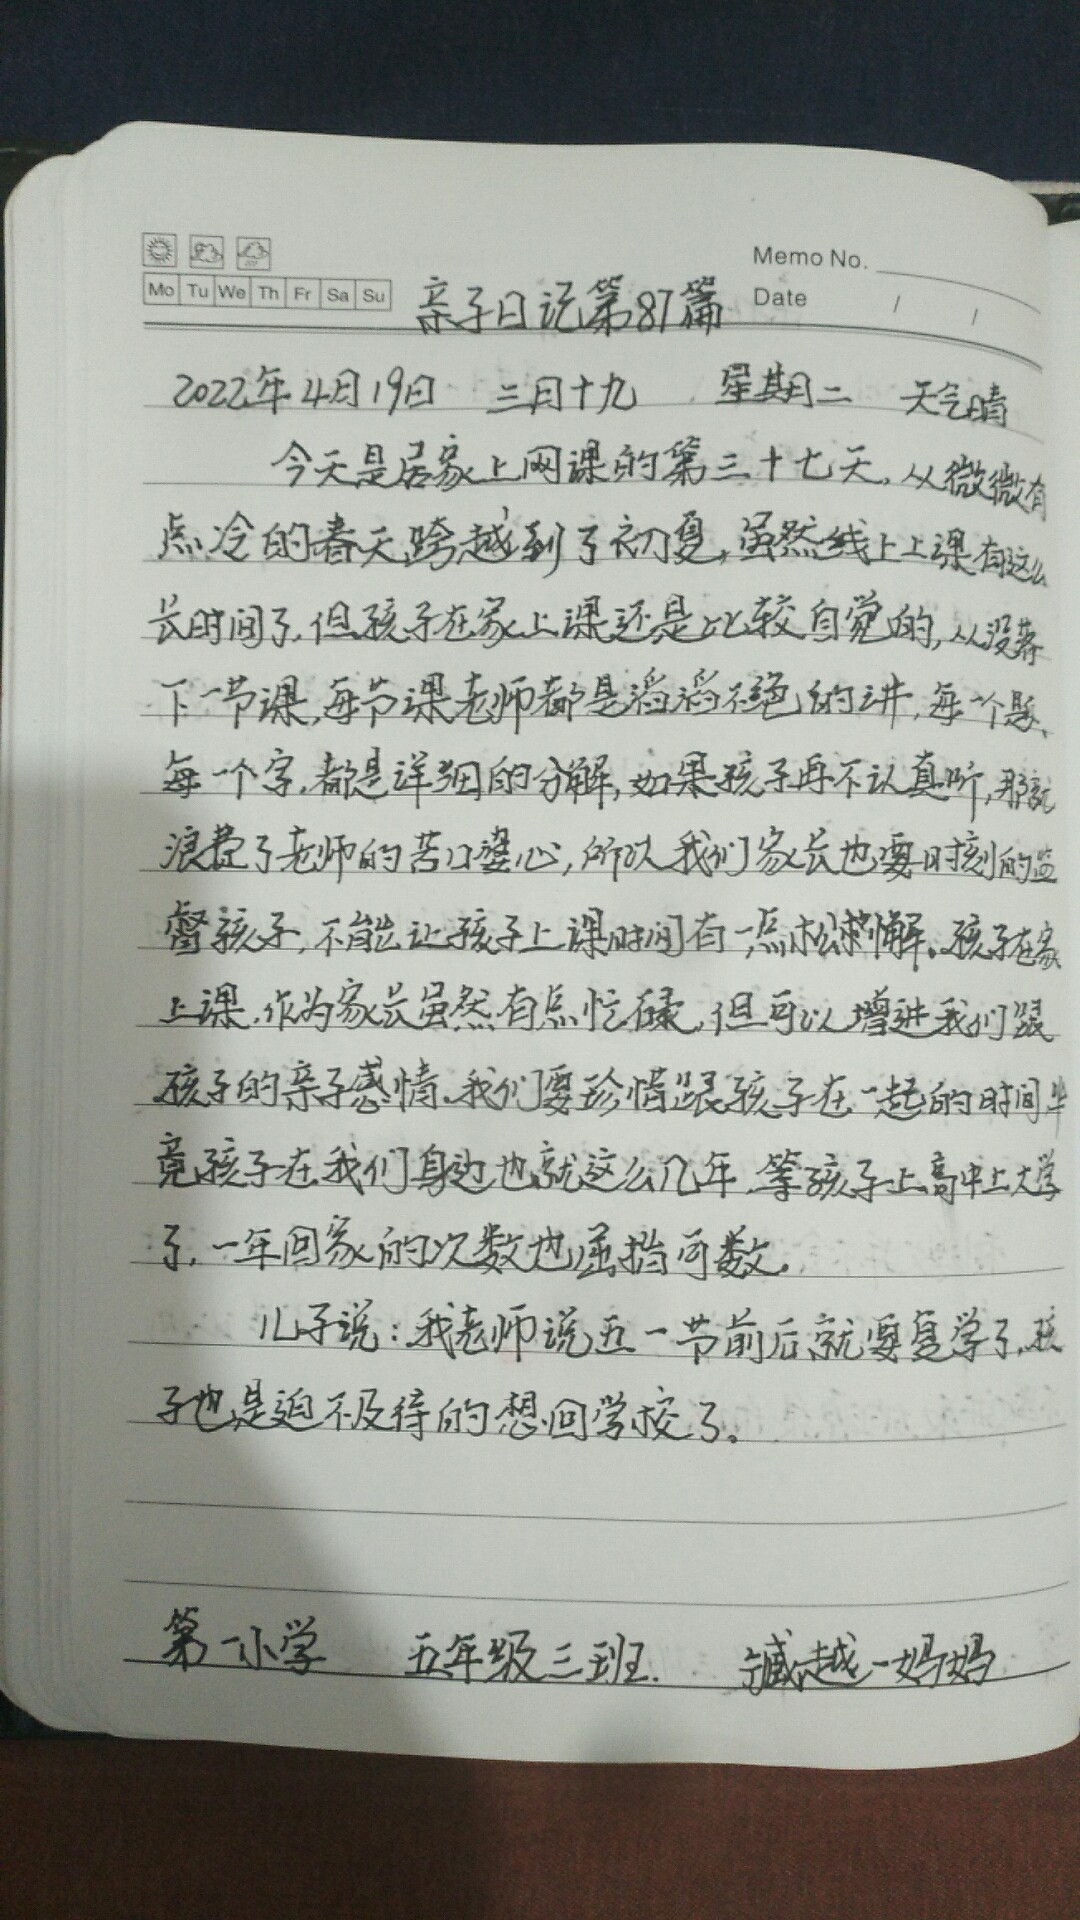 Memo No.
Mo Tu We Th Fr Sa Su
Date / /
亲子日记第87篇
2022年4月19日 三月十九 星期二 天气晴
今天是居家上网课的第三十七天,从微微有
点冷的春天跨越到了初夏,虽然线上上课有这么
长时间了,但孩子在家上课还是比较自觉的,从没落
下一节课,每节课老师都是滔滔不绝的讲,每一个题、
每一个字,都是详细的分解,如果孩子再不认真听,那就
浪费了老师的苦口婆心,所以我们家长也要时刻的监
督孩子,不能让孩子上课时间有一点松懈。孩子在家
上课,作为家长虽然有点忙碌,但可以增进我们跟
孩子的亲子感情,我们要珍惜跟孩子在一起的时间毕
竟孩子在我们身边也就这么几年,等孩子上高中上大学
了,一年回家的次数也屈指可数。
儿子说:我老师说五一节前后就要复学了,孩
子也是迫不及待的想回学校了。
第一小学 五年级三班. 越一妈妈